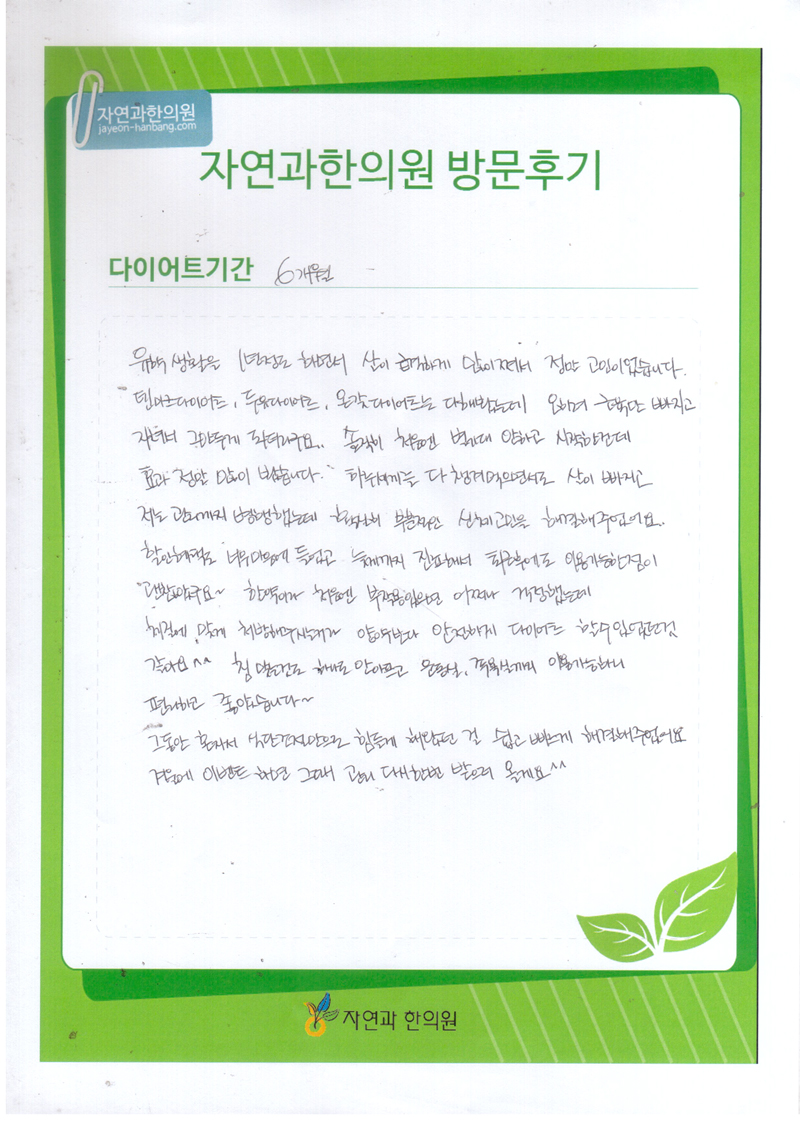 자연과한의원
jayeon-hanbang.com
자연과한의원 방문후기
다이어트기간 6개월
유학생활을 1년정도 하면서 살이 급격하게 많이쪄서 정말 고민이었습니다.
덴마크다이어트, 두유다이어트, 온갖다이어트는 다해봤는데 오히려 근육만 빠지고
솔직히 처음엔 별기대 안하고 시작하는데
효과 정말 많이 봤습니다. 하루세끼를 다 챙겨먹으면서도 살이 빠지고
저는 관리까지 병행했는데 부분적인 신체고민을 해결해주었어요.
할인혜택도 너무마음에 들었고 늦게까지 진료해서 퇴근후에도 이용가능한점이
한약이가 처음엔 부작용있으면 어쩌나 걱정했는데
체질에 맞게 처방해주시는거가 양약보다 안전하게 다이어트 할수있었던것
같아요^^ 침 맞는것도 하나도 안아프고 운동실, 족욕실까지 이용가능하니
편리하고 좋았습니다~
그동안 혼자서 식단조절만으로 힘들게 해왔던 걸 쉽고 빠르게 해결해주었어요
겨울에 이벤트 하면 그때 관리 다시한번 받으러 올게요^^
자연과 한의원